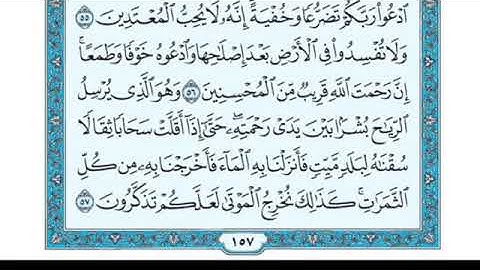 ٱدۡعُواْ رَبَّكُمۡ تَضَرُّعٗا وَخُفۡيَةًۚ إِنَّهُۥ لَا يُحِبُّ ٱلۡمُعۡتَدِينَ ٥٥
وَلَا تُفۡسِدُواْ فِي ٱلۡأَرۡضِ بَعۡدَ إِصۡلَٰحِهَا وَٱدۡعُوهُ خَوۡفٗا وَطَمَعًاۚ
إِنَّ رَحۡمَتَ ٱللَّهِ قَرِيبٞ مِّنَ ٱلۡمُحۡسِنِينَ ٥٦ وَهُوَ ٱلَّذِي يُرۡسِلُ
ٱلرِّيَٰحَ بُشۡرَۢا بَيۡنَ يَدَيۡ رَحۡمَتِهِۦۖ حَتَّىٰٓ إِذَآ أَقَلَّتۡ سَحَابٗا ثِقَالٗا
سُقۡنَٰهُ لِبَلَدٖ مَّيِّتٖ فَأَنزَلۡنَا بِهِ ٱلۡمَآءَ فَأَخۡرَجۡنَا بِهِۦ مِن كُلِّ
ٱلثَّمَرَٰتِۚ كَذَٰلِكَ نُخۡرِجُ ٱلۡمَوۡتَىٰ لَعَلَّكُمۡ تَذَكَّرُونَ ٥٧
١٥٧